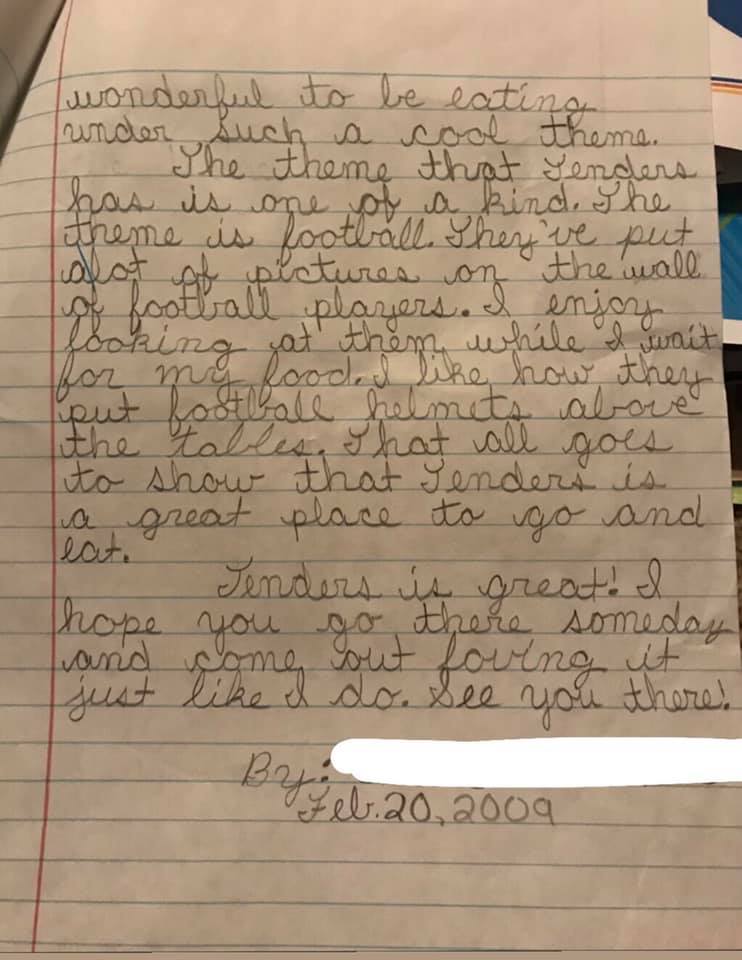 wonderful to be eating
under such a cool theme.
The theme that Tenders
has is one of a kind. The
theme is football. They've put
alot of pictures on the wall
of football players. I enjoy
looking at them while I wait
for my food. I like how they
put football helmets above
the tables. That all goes
to show that Tenders is
a great place to go and
eat.
Tenders is great! I
hope you go there someday
and come out loving it
just like I do. See you there!
By:
Feb. 20, 2009